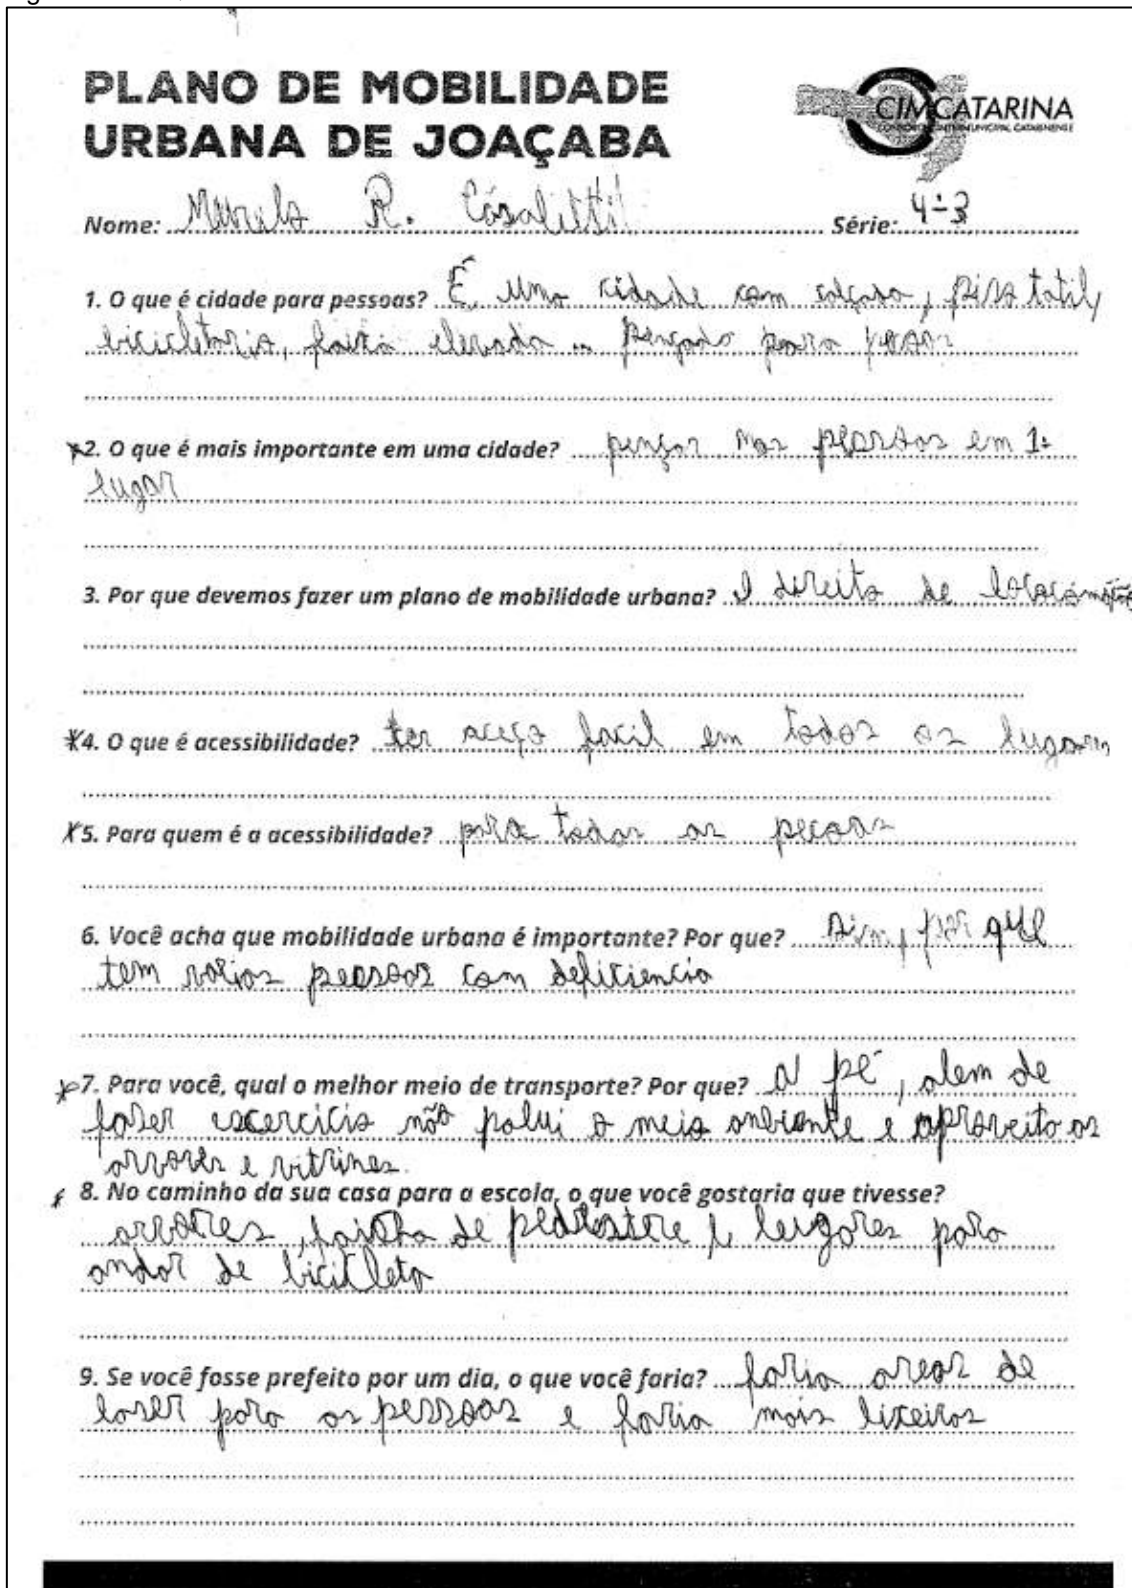 PLANO DE MOBILIDADE
URBANA DE JOAÇABA
CIMCATARINA
CONSÓRCIO INTERMUNICIPAL CATARINENSE
Nome: R. Série: 4-3
1. O que é cidade para pessoas? É uma cidade com calçada, pista tatil,
bicicletaria, faixa elevada ... pençado para
*2. O que é mais importante em uma cidade? pençar nas em 1º
lugar
3. Por que devemos fazer um plano de mobilidade urbana? direito de
*4. O que é acessibilidade? ter aceço facil em todos os lugares
X5. Para quem é a acessibilidade? para todas as pecoas
6. Você acha que mobilidade urbana é importante? Por que? Sim, por que
tem varias peassoas com deficiencia
7. Para você, qual o melhor meio de transporte? Por que? a pé, alem de
faser escercicio não polui o meio anbiente e aproveito as
arvores e vitrines.
8. No caminho da sua casa para a escola, o que você gostaria que tivesse?
arvores, de e lugares para
andar de bicicleta
9. Se você fosse prefeito por um dia, o que você faria? faria areas de
laser para as pessoas e faria mais lixeiras